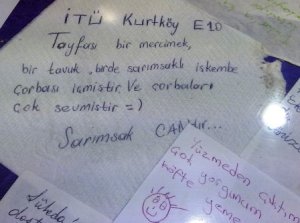 İTÜ Kurtköy E10
Tayfası bir mercimek,
bir tavuk, birde sarımsaklı işkembe
çorbası içmiştir. Ve çorbaları
çok sevmiştir =)
Sarımsak CANdır...
Yüzmeden çıktım
Çok yorgunum
köfte yeme